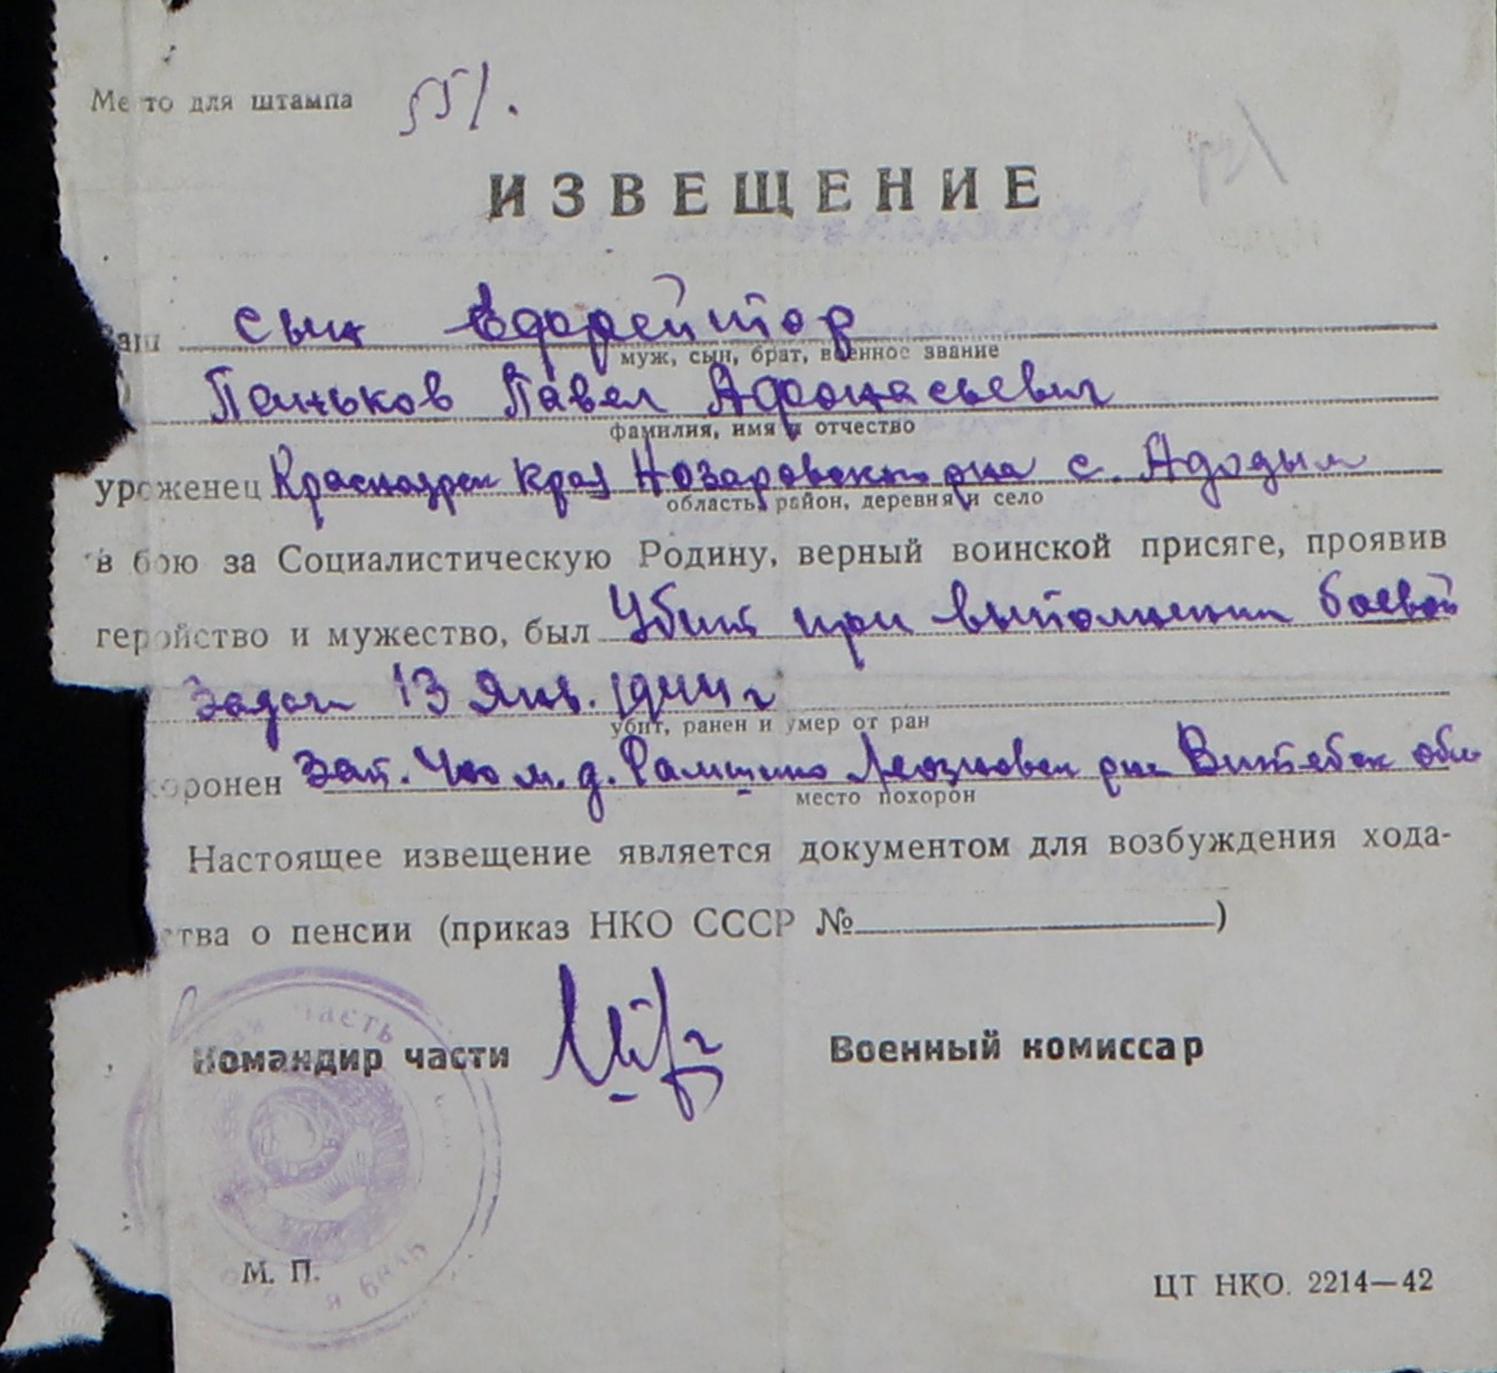 Место для штампа 551.
ИЗВЕЩЕНИЕ
аш сын Ефрейтор
муж, сын, брат, военное звание
Паньков Павел Афонасьевич
фамилия, имя и отчество
уроженец Краснояреи края Назаровского рна с. Ададым
область, район, деревня и село
в бою за Социалистическую Родину, верный воинской присяге, проявив
геройство и мужество, был Убит при выполнении боевой
Задачи 13 Янв. 1944 г
убит, ранен и умер от ран
хоронен Зап. 400 м. д. Рамшино Леозновск рне Витебск обл
место похорон
Настоящее извещение является документом для возбуждения хода-
ства о пенсии (приказ НКО СССР №)
Командир части Военный комиссар
часть
М. П.
ЦТ НКО. 2214—42